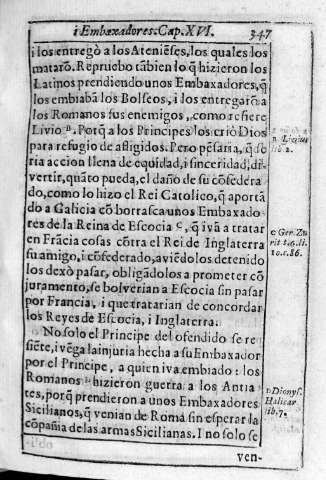 i Embaxadores. Cap. XVI. 347
i los entregò a los Ateniẽses, los quales los
matarõ. Repruebo tãbien lo q̃ hizieron los
Latinos prendiendo unos Embaxadores, q̃
los embiabã los Bolscos, i los entregarõ a
los Romanos sus enemigos, como refiere
Livio ᴮ. Porq̃ a los Principes los criò Dios
para refugio de afligidos. Pero pẽsaria, q̃ se
ria accion llena de equidad, i sinceridad, di-
vertir, quãto pueda, el daño de su cõfedera
do, como lo hizo el Rei Catolico, q̃ aportã
do a Galicia cõ borrasca unos Embaxado
res de la Reina de Escocia ᶜ, q̃ ivã a tratar
en Frãcia cosas cõtra el Rei de Inglaterra
su amigo, i cõfederado, aviẽdolos detenido
los dexò pasar, obligãdolos a prometer cõ
juramento, se bolverian a Escocia sin pasar
por Francia, i que tratarian de concordar
los Reyes de Escocia, i Inglaterra.
No solo el Principe del ofendido se re
siẽte, i vẽga la injuria hecha a su Embaxador
por el Principe, a quien iva embiado: los
Romanos ᴰ hizieron guerra a los Antia
tes, porq̃ prendieron a unos Embaxadores
Sicilianos, q̃ venian de Roma sin esperar la
cõpañia de las armas Sicilianas. I no solo se
ven-
lib 2.
c Ger. Zu
rit to. 6. li.
10. c. 86.
D Dionys.
Halicar
lib. 7.